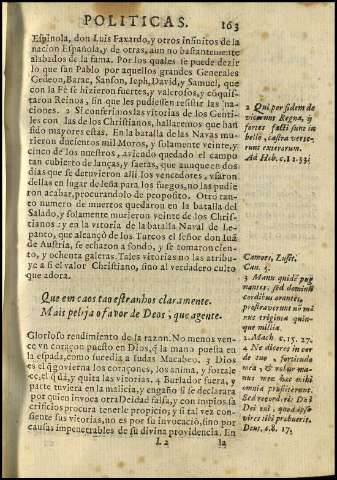 POLITICAS.
163
Espinola, don Luis Faxardo, y otros infinitos de la
nacion Española, y de otras, aun no bastantemente
alabados de la fama. Por los quales se puede dezir
lo que san Pablo por aquellos grandes Generales
Gedeon, Barac, Sanson, Ieph, David, y Samuel, que
con la Fè se hizieron fuertes, y valerosos, y cõquis-
taron Reinos, sin que les pudiessen resistir las na-
ciones. 2 Si conferimos las vitorias de los Genti-
les con las de los Christianos, hallaremos que han
sido mayores estas. En la batalla de las Navas mu-
rieron ducientos mil Moros, y solamente veinte, y
cinco de los nuestros, aviendo quedado el campo
tan cubierto de lanças, y saetas, que aunque en dos
dias que se detuvieron alli los vencedores, vsaron
dellas en lugar de leña para los fuegos, no las pudie
ron acabar, procurandolo de proposito. Otro tan-
to numero de muertos quedaron en la batalla del
Salado, y solamente murieron veinte de los Chris-
tianos; y en la vitoria de la batalla Naval de Le-
panto, que alcançò de los Turcos el señor don Iuã
de Austria, se echaron a fondo, y se tomaron cien-
to, y ochenta galeras. Tales vitorias no las atribu-
ye a si el valor Christiano, sino al verdadero culto
que adora.
Que em caos tao estranhos claramente.
Mais peleja o favor de Deos, que agente.
Glorioso rendimiento de la razon. No menos ven-
ce vn coraçon puesto en Dios, q̃ la mano puesta en
la espada, como sucediò a Iudas Macabeo. 3 Dios
es el q̃ govierna los coraçones, los anima, y fortale
ce, el q̃ dà, y quita las vitorias. 4 Burlador fuera, y
parte tuviera en la malicia, y engaño si se declarara
por quien invoca otra Deidad falsa, y con impios sa
crificios procura tenerle propicio; y si tal vez con-
siente sus vitorias, no es por su invocaciõ, sino por
causas impenetrables de su divina providencia. En
L 2
la
2 Qui per fidem de
vicerunt Regna, &
fortes facti sunt in
bello, castra verte-
runt exterorum.
Ad Heb. c. 11. 33.
Camoes, Lusit.
Can. 3.
3 Manu quidẽ pug
nantes, sed dominũ
cordibus orantes,
prostraverunt nõ mi
nus triginta quin-
que millia.
2. Mach. c. 15. 27.
4 Ne diceres in cor
de tuo, fortitudo
mea, & robur ma-
nus meæ hæc mihi
omnia præstiterunt.
Sed recorderis Dñi
Dei tui, quod ipse
vires tibi præbuerit.
Deut. c. 8. 17.